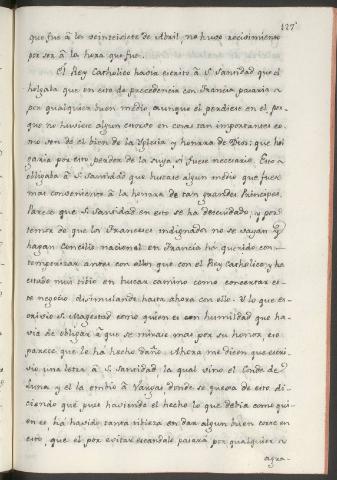 127
que fue à los veinteisiete de Abril, no huvo recivimiento
por ser à la hora que fue.
El Rey Catholico havia escrito à S. Santidad que el
holgaba que en esto de precedencia con Francia pasaria
por qualquier buen medio, aunque el perdiese en el por-
que no huviese algun enorvo en cosas tan importantes co-
mo son de el bien de la Yglesia y honrra de Dios: que hol
garia por esto perder de la suya si fuese necesario. Esto
obligaba à S. Santidad que buscase algun medio que fuera
mas conveniente à la honrra de tan grandes Principes.
Parece que S. Santidad en esto se ha descuidado, y por
temor de que los Franceses indignados no se vayan y
hagan Concilio nacional en Francia ha querido con-
temporizar antes con ellos que con el Rey Catholico, y ha
estado mui tibio en buscar camino como concertar es-
te negocio disimulando hasta ahora con ello. Y lo que es-
crivio S. Magestad como quien es con humildad que ha-
via de obligar à que se mirase mas por su honor, esto
parece que le ha hecho daño. Ahora me dicen que escri-
vio una letra à S. Santidad la qual vino el Conde de
Luna y el la embiò à Vargas, donde se quexa de esto di-
ciendo que pues haviendo el hecho lo que debia como qui-
en es, ha havido tanta tibieza en dar algun buen corte en
esto, que el por evitar escandalo pasarà por qualquier
agra-